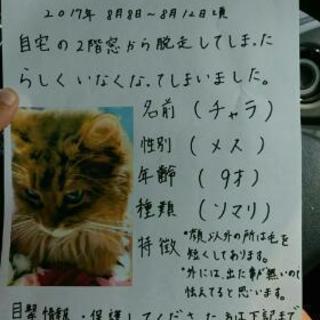 2017年 8月8日~8月12日頃
自宅の2階窓から脱走してしまった
らしくいなくなってしまいました。
名前 (チャラ)
性別 (メス)
年齢 (9才)
種類 (ソマリ)
特徴 *顔以外の所は毛を
短くしてあります。
*外には、出た事が無いので
怯えてると思います。
目撃情報・保護してくださった方は下記まで